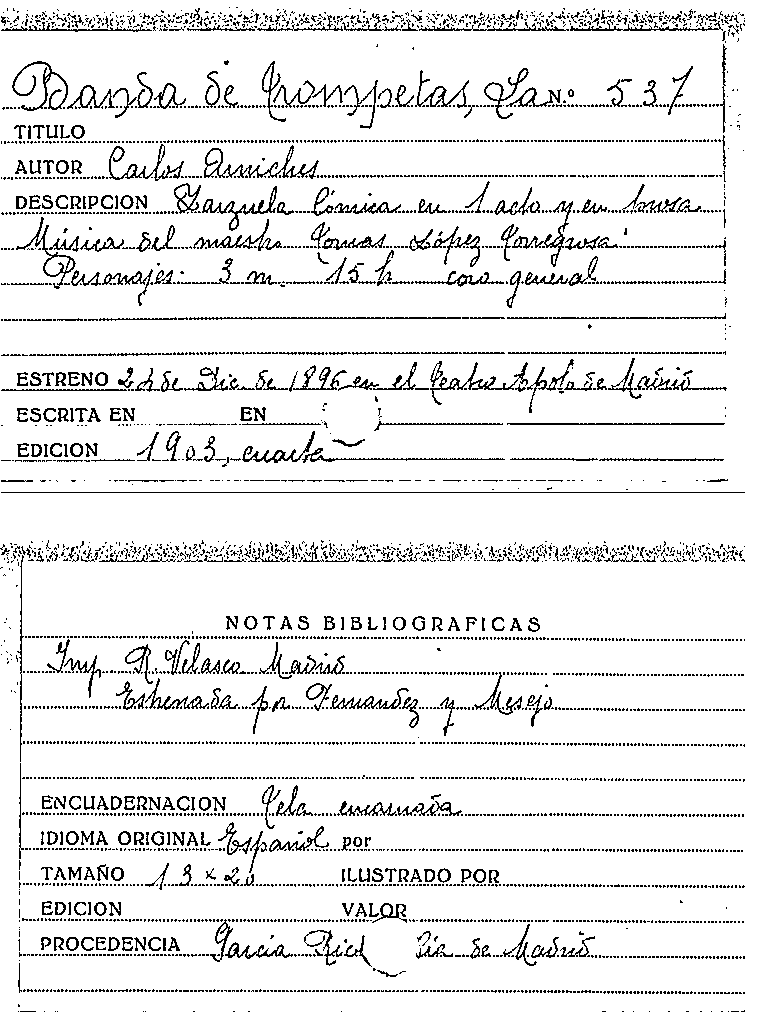 Banda de Trompetas, La N.º 537
TITULO
AUTOR Carlos Arniches
DESCRIPCION Zarzuela Cómica en 1 acto y en prosa
Música del maestro Tomas López Torregrosa
Personajes: 3 m. 15 h coro general
ESTRENO 24 de Dic. de 1896 en el Teatro Apolo de Madrid
ESCRITA EN EN
EDICION 1903, cuarta
NOTAS BIBLIOGRAFICAS
Imp R. Velasco Madrid
Estrenada por Fernandez y Mesejo
ENCUADERNACION Tela encarnada
IDIOMA ORIGINAL Español por
TAMAÑO 13 x 20 ILUSTRADO POR
EDICION VALOR
PROCEDENCIA Garcia Rico de Madrid